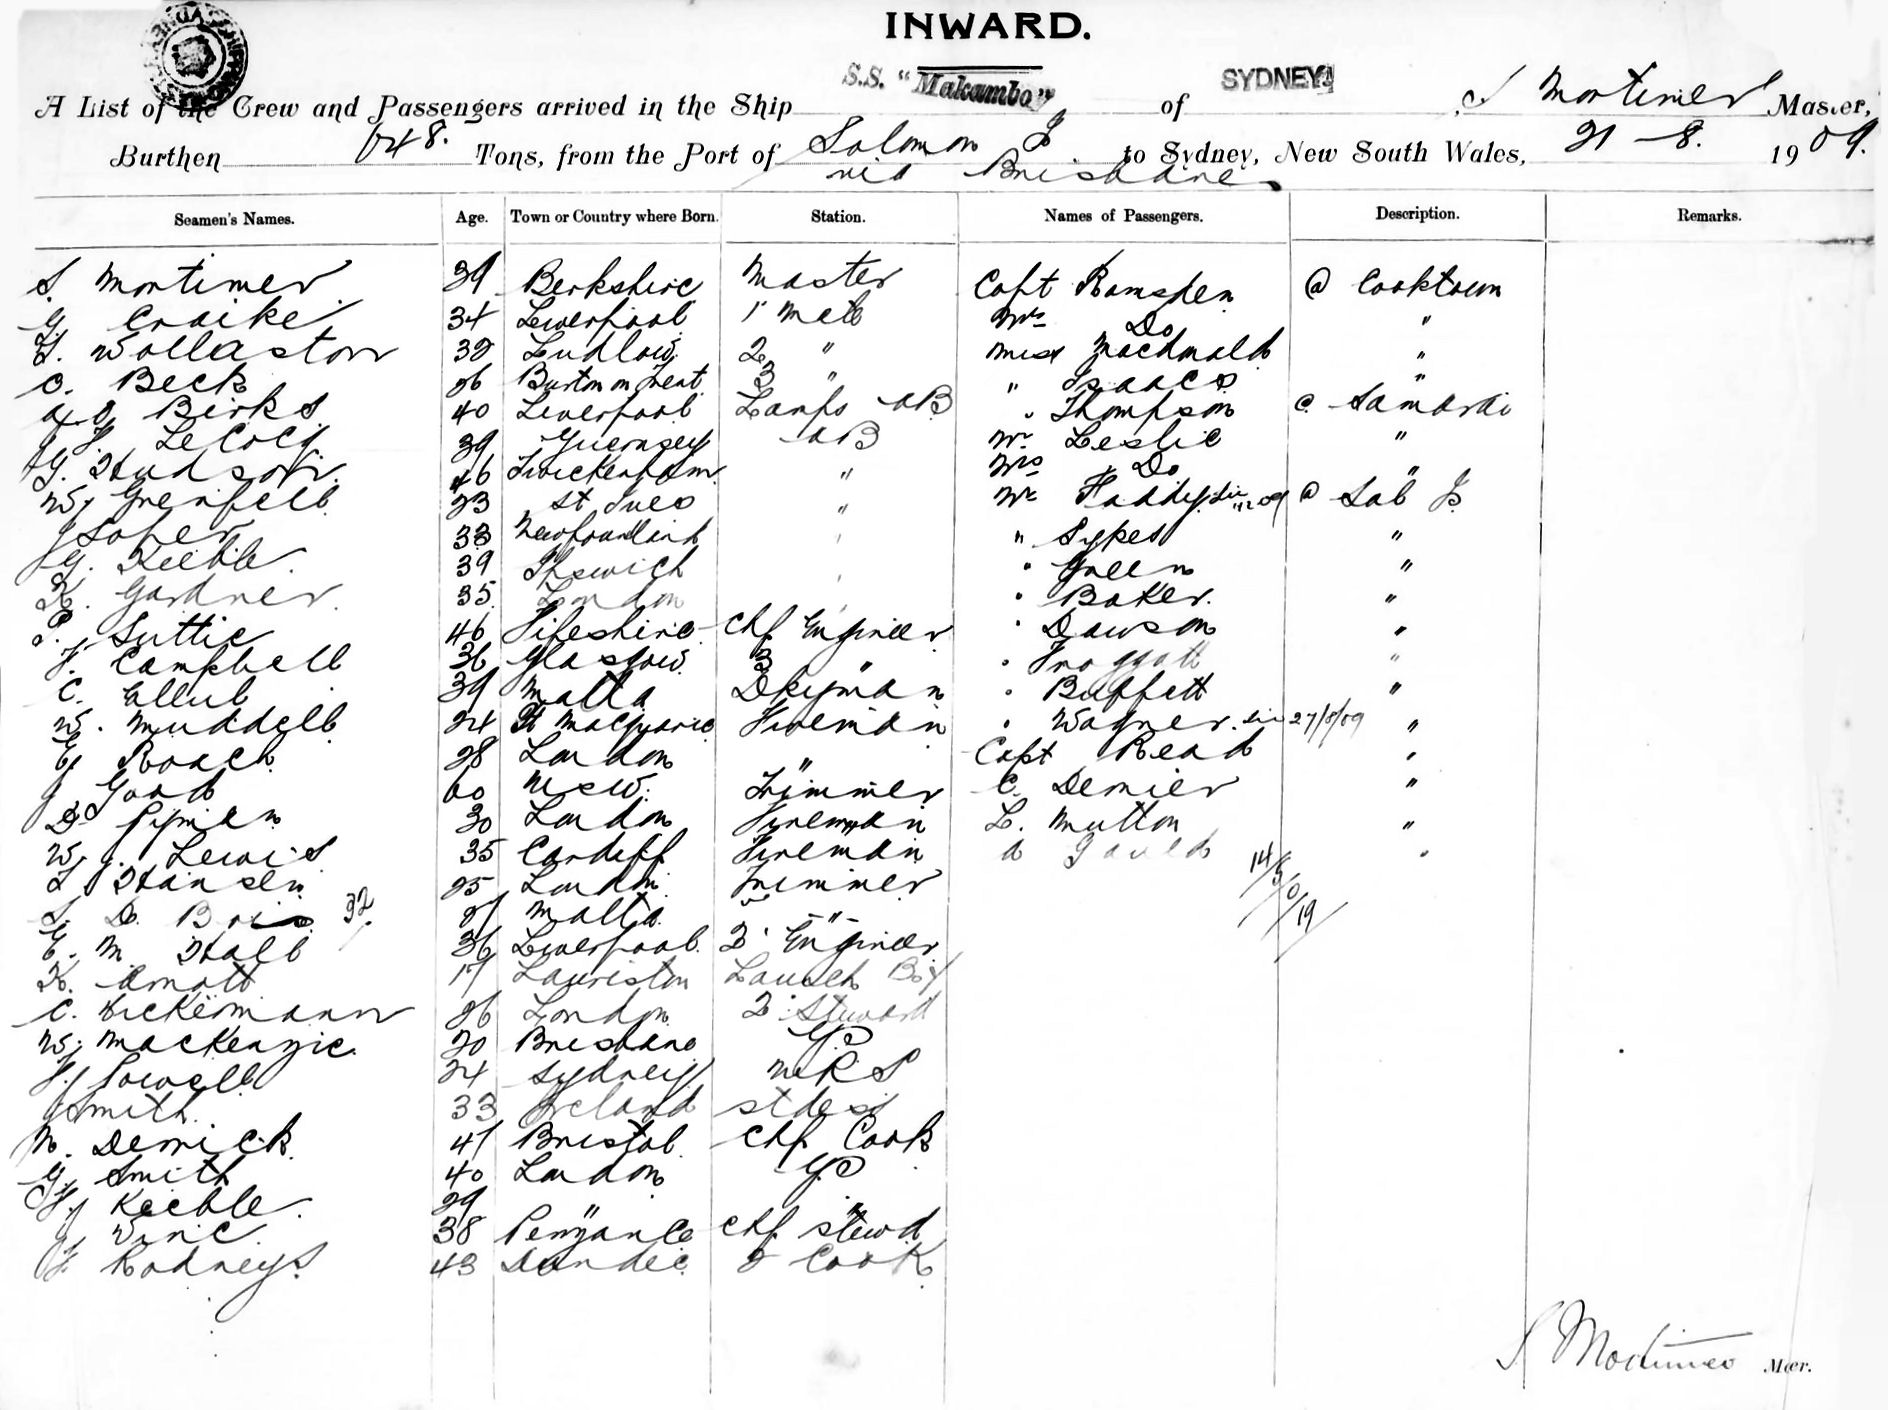 INWARD.
S.S. "Makambo" SYDNEY
A List of the Crew and Passengers arrived in the Ship of , S Mortimer Master,
Burthen 648. Tons, from the Port of Solomon Is to Sydney, New South Wales, 21-8. 1909.
via Brisbane
Seamen's Names. Age. Town or Country where Born. Station. Names of Passengers. Description. Remarks.
S. Mortimer 39 Berkshire Master Capt Ramsden @ Cooktown
G Craike 34 Liverpool 1 Mate Mrs Do "
Wollaston Ludlow 2 " Miss Macdonald "
C. Beck 26 Burton on Trent 3 " " Isaacs "
Birks 40 Liverpool Lamps AB " Thompson Samarai
Le Cocq 39 Guernsey AB Mr Leslie "
G. Hudson 46 Twickenham " Mrs Do "
W. Grenfell 23 St Ives " Mr @ Sol Is
J Soper 33 Newfoundland " Sykes "
G. Keeble 39 Ipswich " Green "
Gardner 35 London " Baker. "
Suttie 46 Fifeshire Chf Engineer " Dawson "
Campbell 36 Glasgow 3 " " Froggatt "
C. Ellul 39 Malta Dkeyman " Buffett "
W. Muddell 24 Pt Macquarie Fireman " Wagner. 27/8/09 "
E Roach 28 London " Capt Read "
J Good 60 NSW. Trimmer C. Demier "
D Pyman 30 London Fireman L. Mutton "
W. J. Lewis 35 Cardiff Fireman A Gauld "
Hansen 25 London Trimmer
32 Malta "
E. M. Hall 36 Liverpool 2 Engineer
Arnott 17 Lauriston Boy
C. Wickermann 26 London 2 Steward
W. Mackenzie 20 Brisbane GS
Powell 24 Sydney MRS
J Smith 33 Ireland Stdess
Derrick 41 Bristol Chf Cook
G. Smith 40 London GS
Keeble 29 " "
38 Penzance Chf Stewd
Rodneys 43 Dundee 2 Cook
S Mortimer Mter.